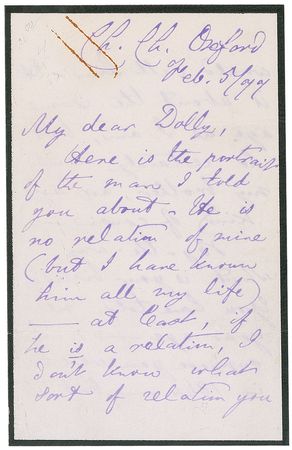 Ch. Ch. Oxford
Feb. 5/97
My dear Dolly,
Here is the portrait
of the man I told
you about. He is
no relation of mine
(but I have known
him all my life)
— at least, if
he is a relation, I
don't know what
sort of relation you